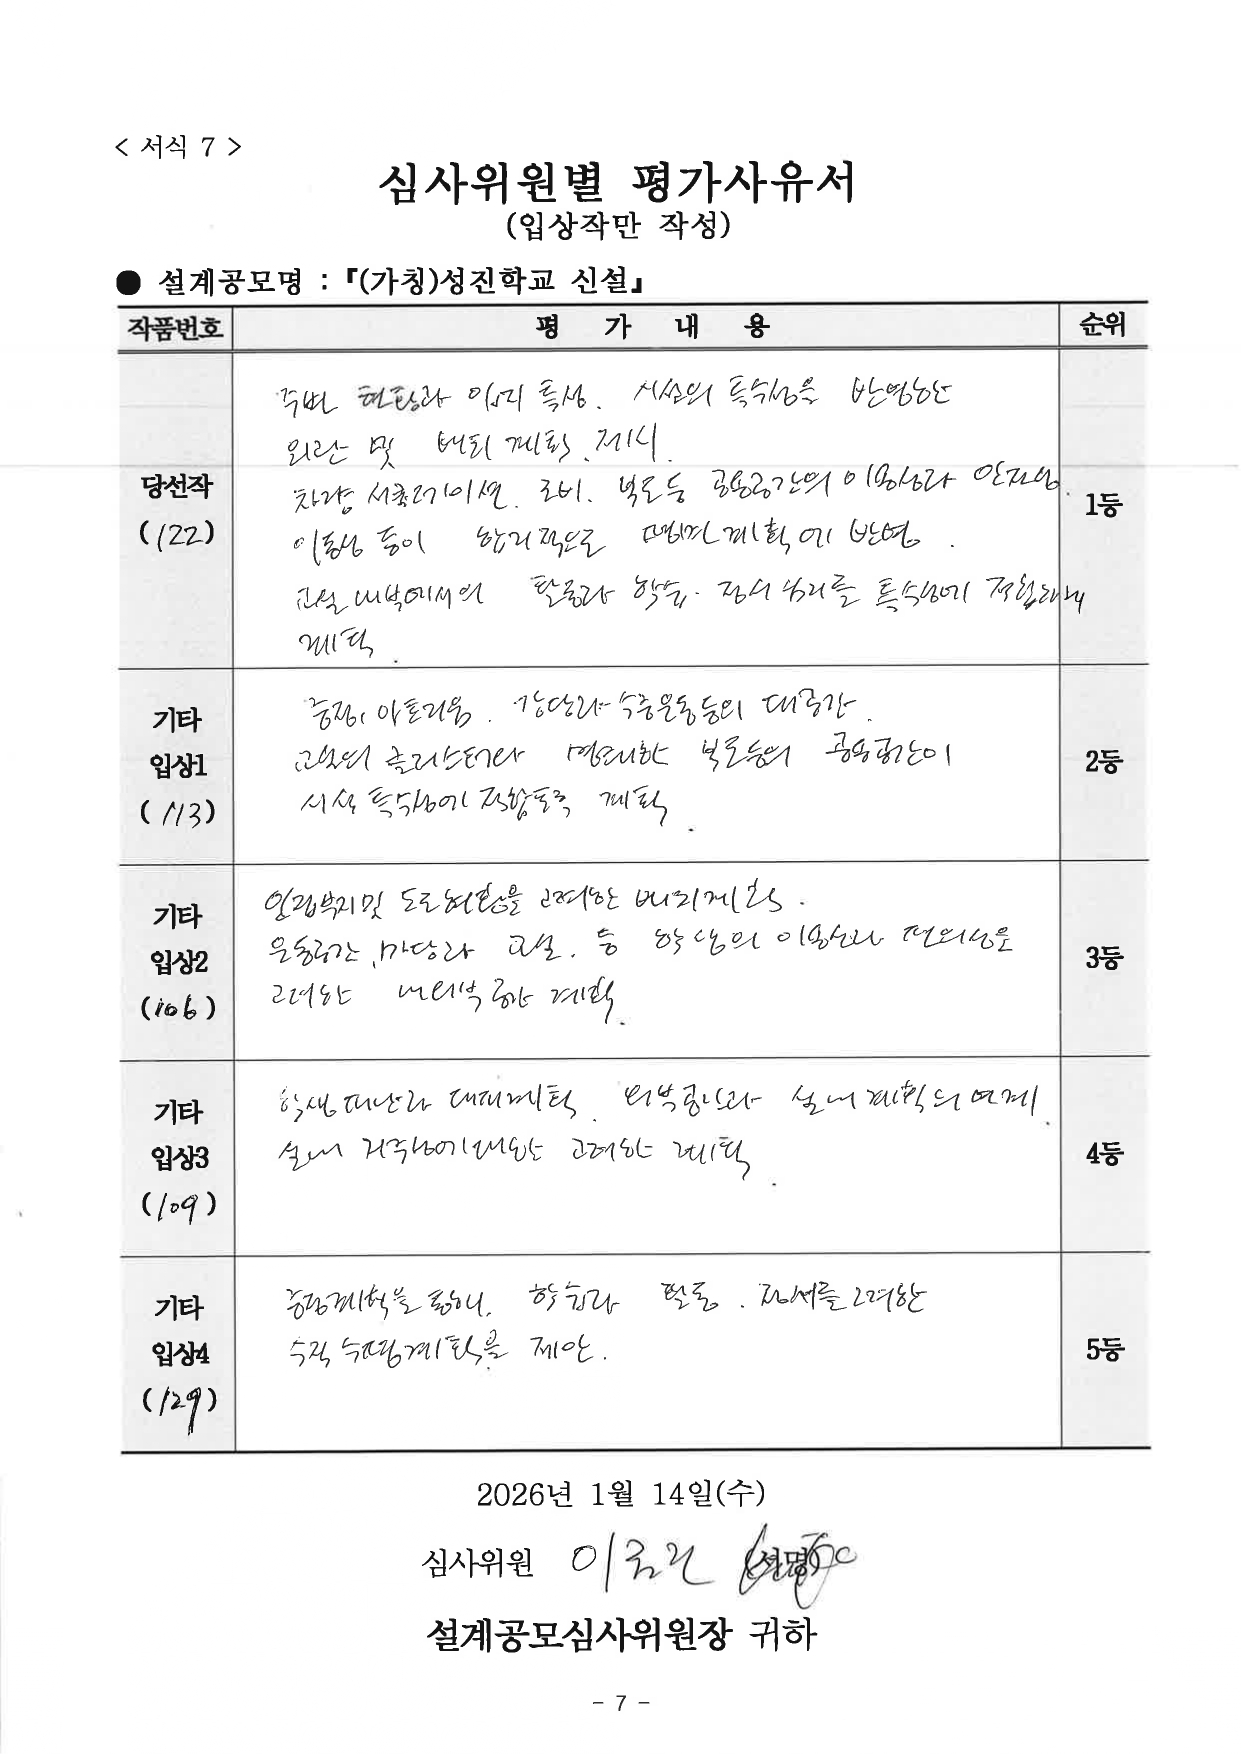 < 서식 7 >
심사위원별 평가사유서
(입상작만 작성)
● 설계공모명 : 『(가칭)성진학교 신설』
작품번호 평 가 내 용 순위
당선작 (122) 1등
주변 현황과 입지 특성. 시설의 특수성을 반영한
외관 및 배치 계획 제시.
차량 서큘레이션. 로비. 복도등 공용공간의 이용성과 안전성.
이동성 등이 합리적으로 평면계획에 반영.
교실 내부에서의 활동과 학습. 정서 분리를 특수성에 적합하게
계획.
기타 입상1 (113) 2등
중정, 아트리움. 강당과 수중운동등의 대공간.
교실의 클러스터와 명료한 복도등의 공용공간이
시설 특수성에 적합토록 계획.
기타 입상2 (106) 3등
인접부지 및 도로현황을 고려한 배치계획.
운동공간, 마당과 교실. 등 학생의 이용성과 편의성을
고려한 내외부 공간 계획.
기타 입상3 (109) 4등
학생 피난과 대피계획. 외부공간과 실내 계획의 연계.
실내 거주성에 대한 고려한 계획.
기타 입상4 (129) 5등
중정계획을 통해, 학습과 활동. 정서를 고려한
수직 수평계획을 제안.
2026년 1월 14일(수)
심사위원 (서명)
설계공모심사위원장 귀하
- 7 -